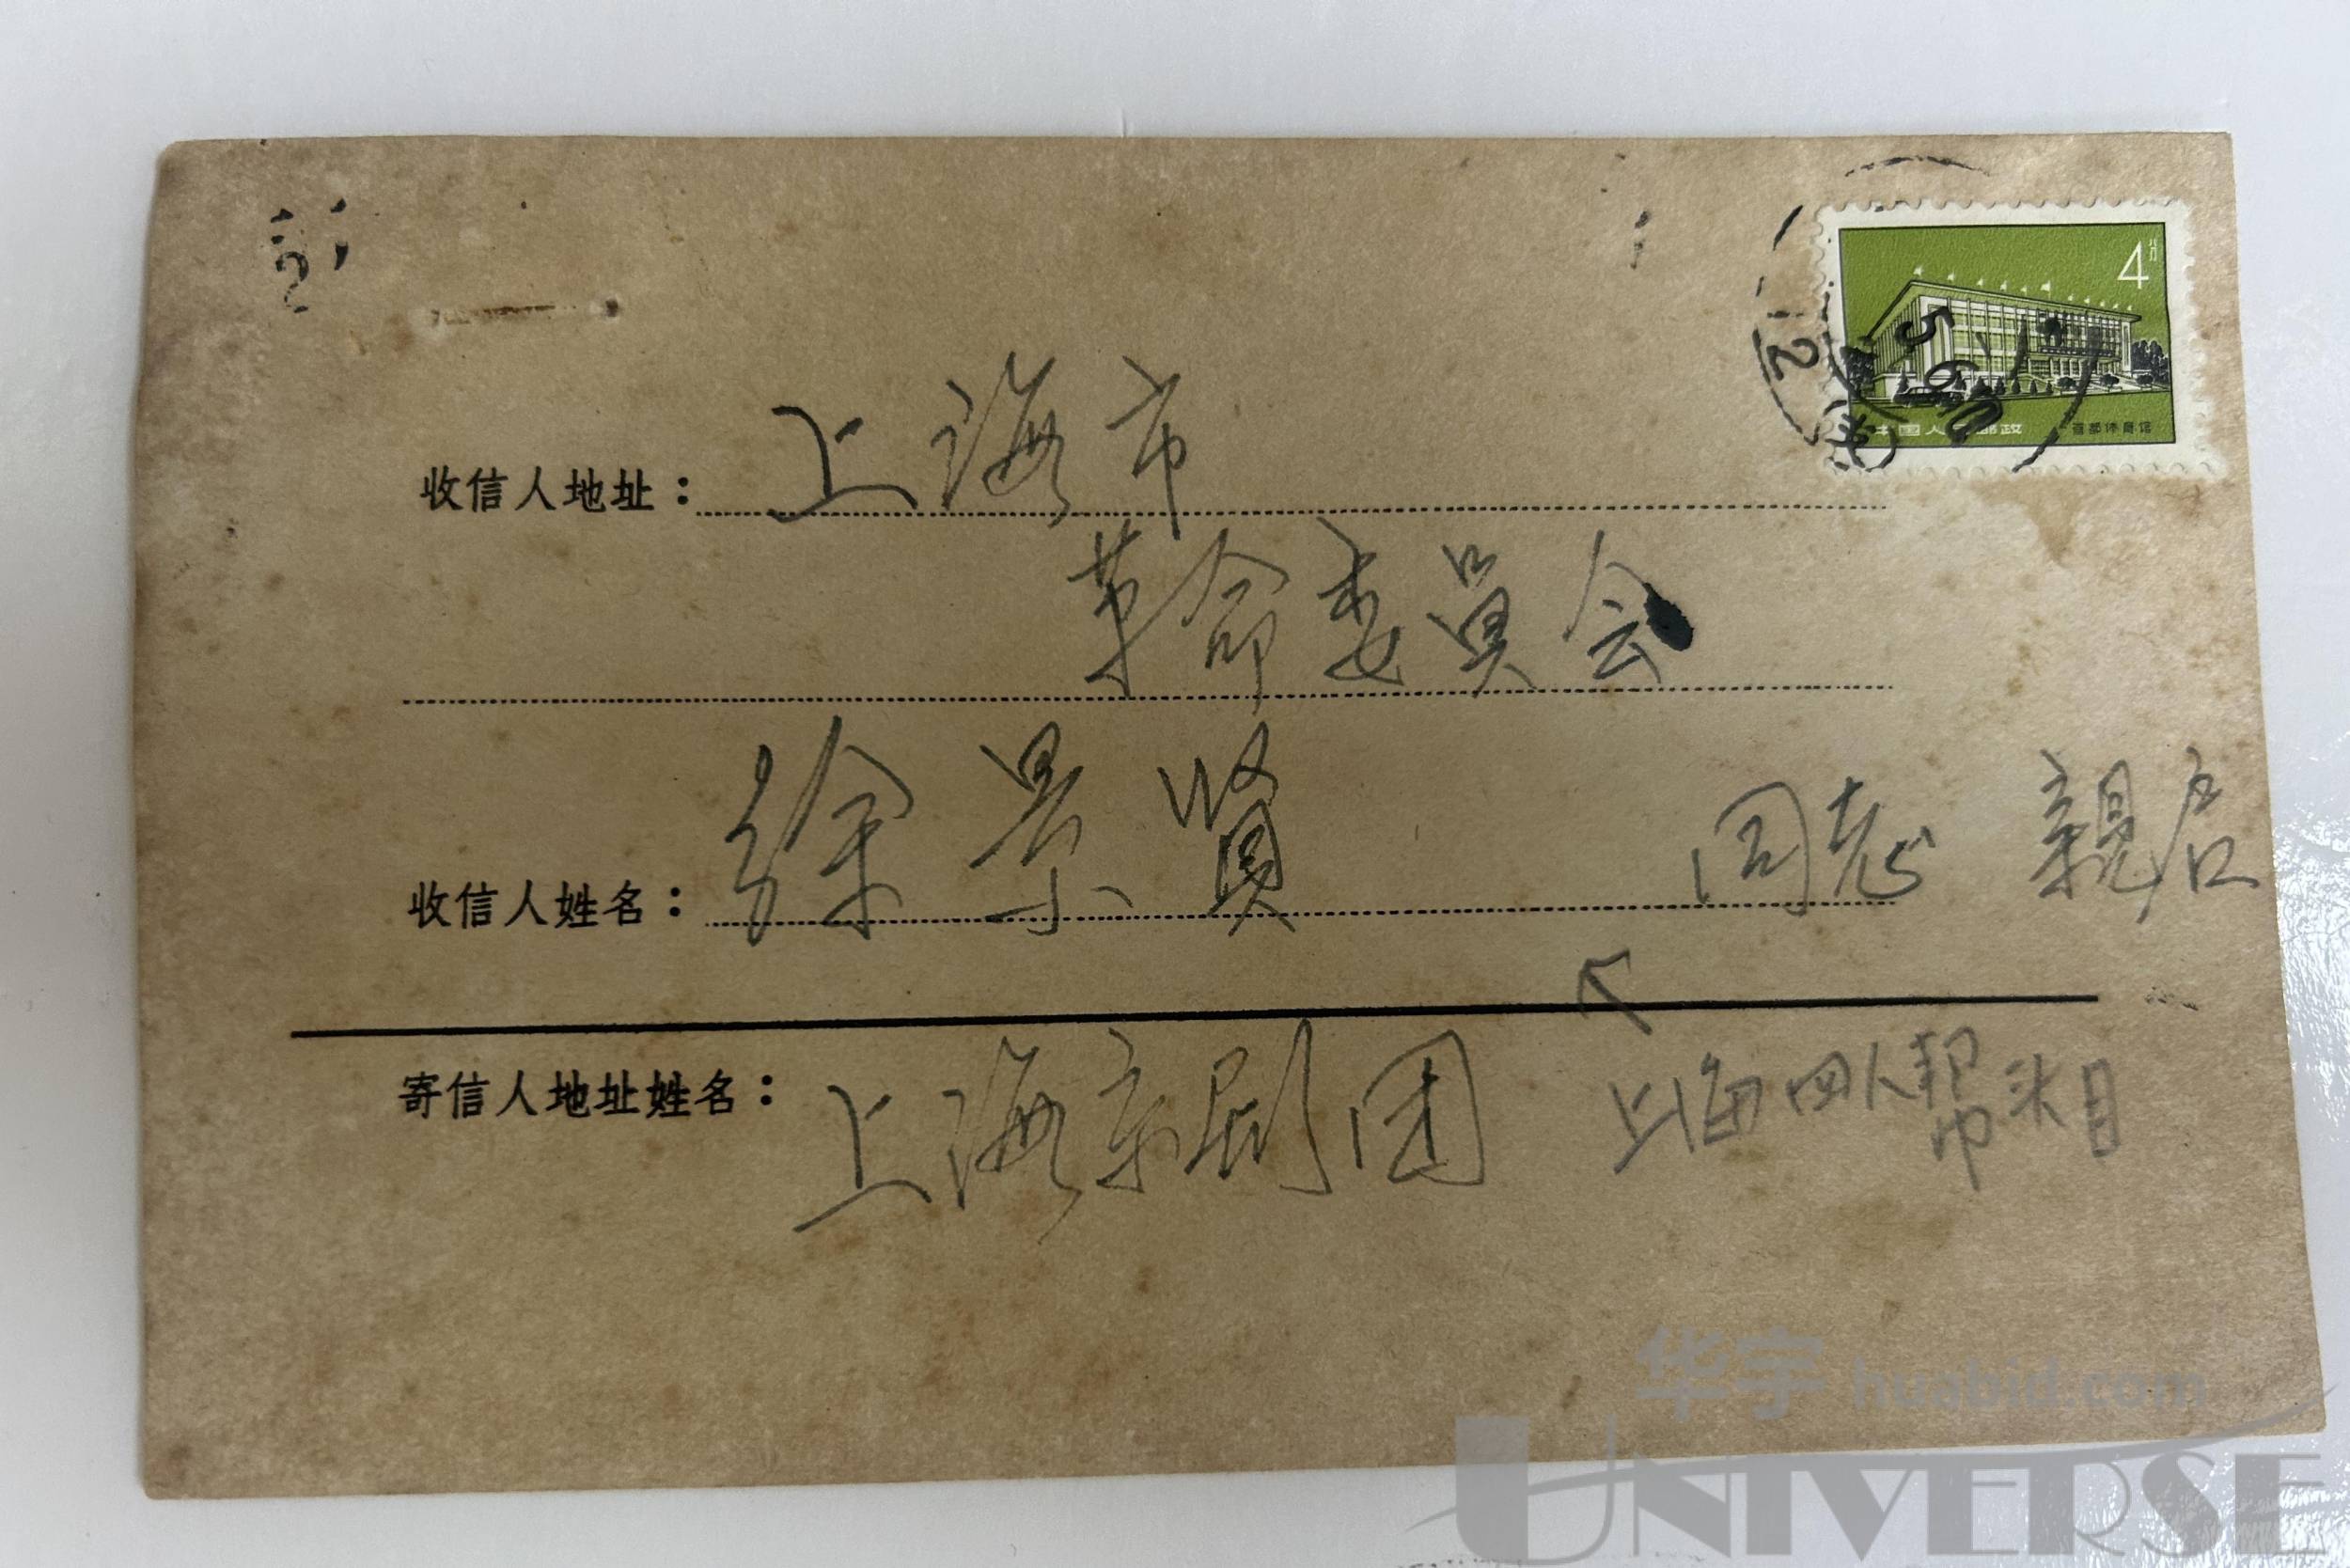 4分
中国人民邮政 首都体育馆
收信人地址：上海市
革命委員会
收信人姓名：徐景賢 同志 親启
寄信人地址姓名：上海京剧团
上海四人帮头目
华宇 huabid.com
UNIVERSE